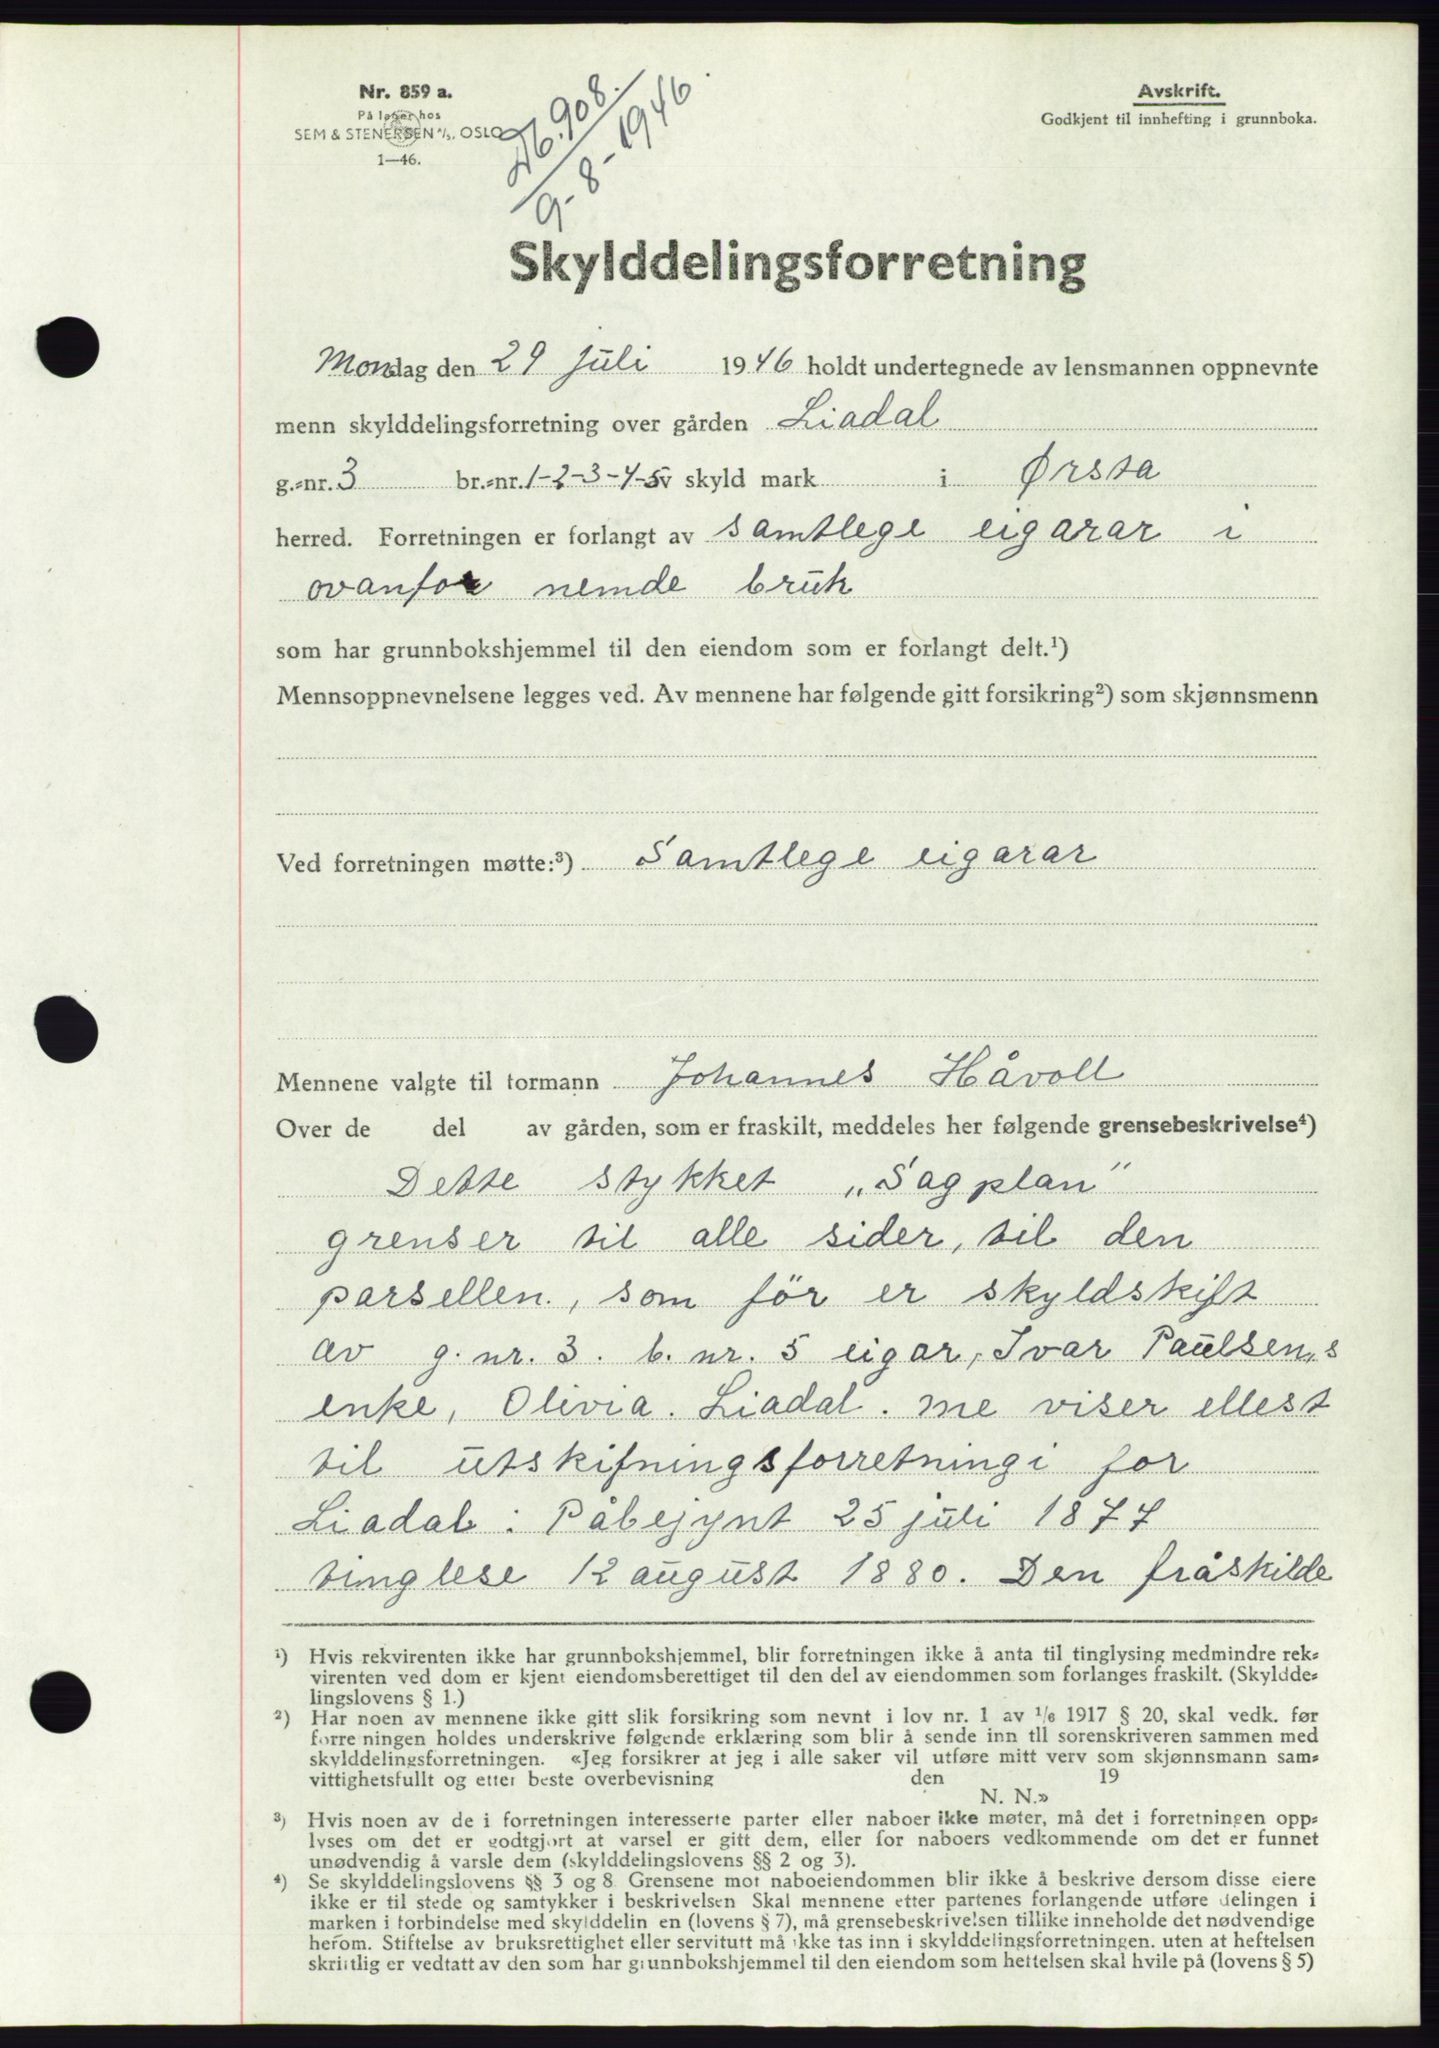 Nr. 859 a.
På lager hos
SEM & STENERSEN A/S, OSLO
1—46.
Db. 908.
9-8-1946.
Avskrift.
Godkjent til innhefting i grunnboka.
Skylddelingsforretning
Mondag den 29 juli 1946 holdt undertegnede av lensmannen oppnevnte
menn skylddelingsforretning over gården Liadal
g.=nr. 3 br.=nr. 1-2-3-4-5 av skyld mark i Ørsta
herred. Forretningen er forlangt av samtlege eigarar i
ovanfor nemde bruk
som har grunnbokshjemmel til den eiendom som er forlangt delt.¹)
Mennsoppnevnelsene legges ved. Av mennene har følgende gitt forsikring²) som skjønnsmenn
Ved forretningen møtte:³) Samtlege eigarar
Mennene valgte til formann Johannes Håvoll
Over de del av gården, som er fraskilt, meddeles her følgende grensebeskrivelse⁴)
Dette stykket „Sagplan"
grenser til alle sider, til den
parsellen., som för er skyldskift
av g. nr. 3. b. nr. 5 eigar, Ivar Paulsen,s
enke, Olivia. Liadal. me viser ellest
til utskifningsforretningi for
Liadal: Påbejynt 25 juli 1877
tinglese 12 august 1880. Den fråskilde
¹) Hvis rekvirenten ikke har grunnbokshjemmel, blir forretningen ikke å anta til tinglysing medmindre rek=
virenten ved dom er kjent eiendomsberettiget til den del av eiendommen som forlanges fraskilt. (Skyldde=
lingslovens § 1.)
²) Har noen av mennene ikke gitt slik forsikring som nevnt i lov nr. 1 av 1/6 1917 § 20, skal vedk. før
forretningen holdes underskrive følgende erklæring som blir å sende inn til sorenskriveren sammen med
skylddelingsforretningen. «Jeg forsikrer at jeg i alle saker vil utføre mitt verv som skjønnsmann sam=
vittighetsfullt og etter beste overbevisning den 19
N. N.»
³) Hvis noen av de i forretningen interesserte parter eller naboer ikke møter, må det i forretningen opp=
lyses om det er godtgjort at varsel er gitt dem, eller for naboers vedkommende om det er funnet
unødvendig å varsle dem (skylddelingslovens §§ 2 og 3).
⁴) Se skylddelingslovens §§ 3 og 8. Grensene mot naboeiendommen blir ikke å beskrive dersom disse eiere
ikke er til stede og samtykker i beskrivelsen Skal mennene etter partenes forlangende utføre delingen i
marken i forbindelse med skylddelingen (lovens § 7), må grensebeskrivelsen tillike inneholde det nødvendige
herom. Stiftelse av bruksrettighet eller servitutt må ikke tas inn i skylddelingsforretningen. uten at heftelsen
skriftlig er vedtatt av den som har grunnbokshjemmel til den eiendom som heftelsen skal hvile på (lovens § 5)